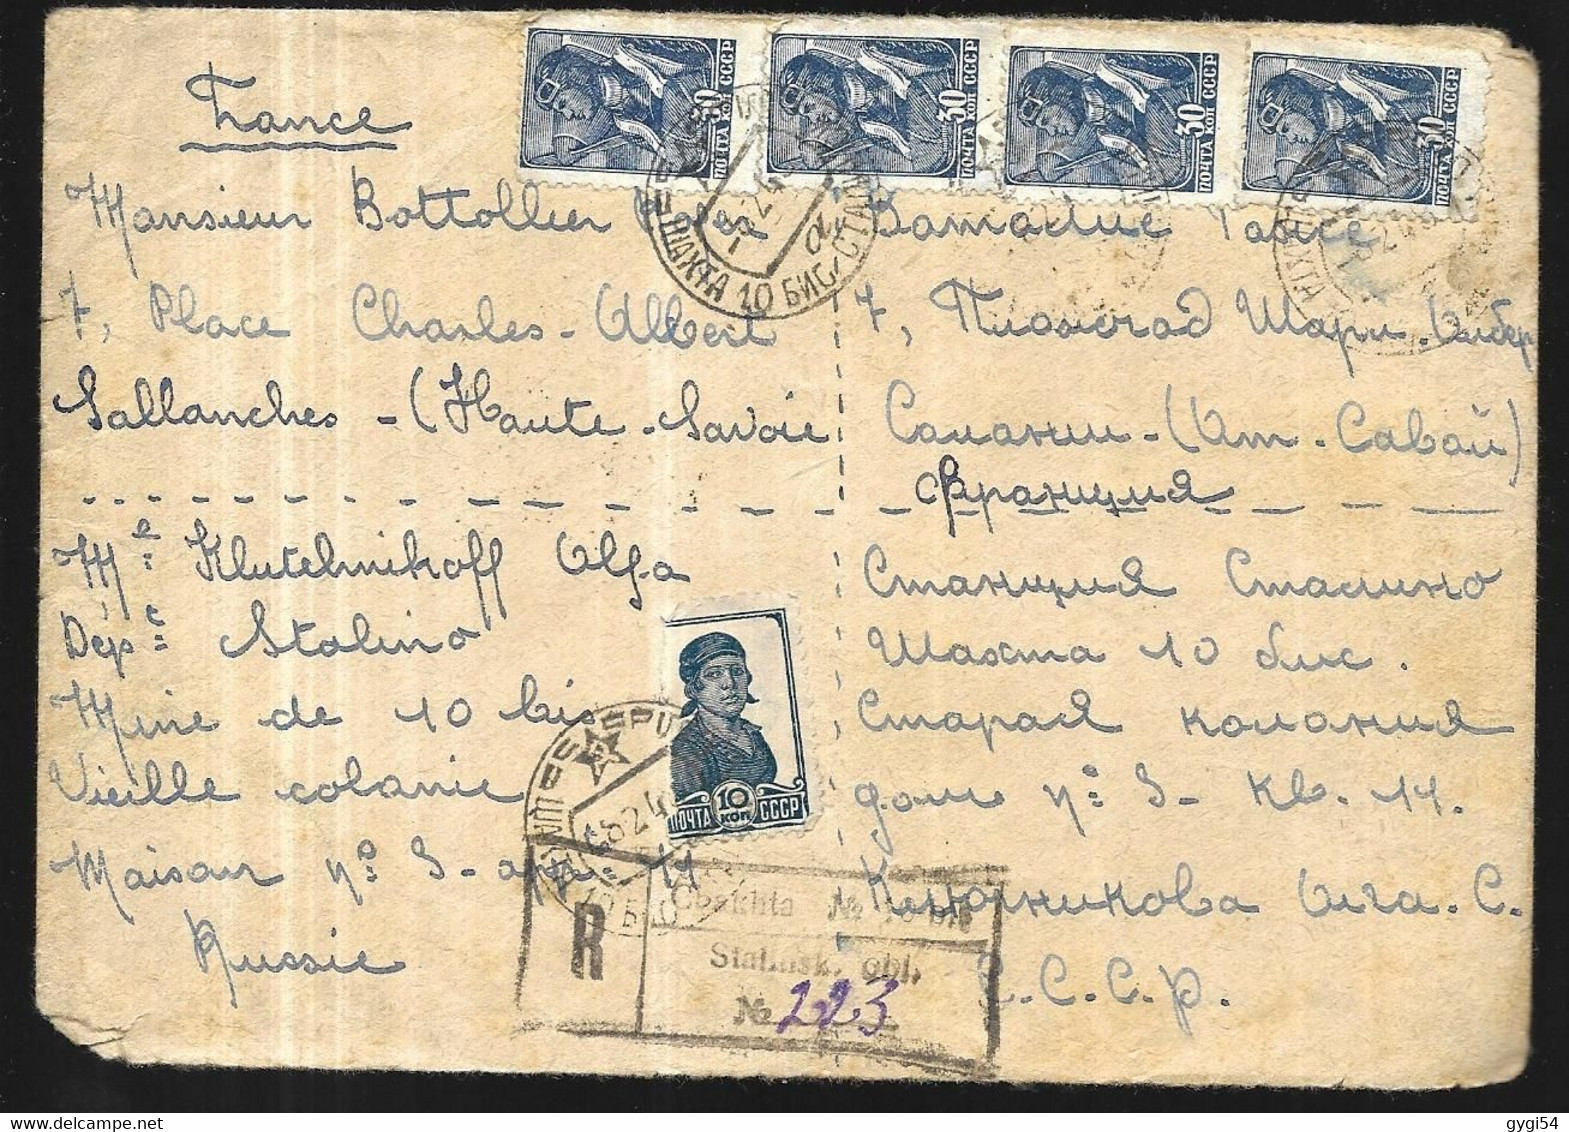 France
30 КОП ПОЧТА СССР
30 КОП ПОЧТА СССР
30 КОП ПОЧТА СССР
30 КОП ПОЧТА СССР
ШАХТА 10 БИС СТАЛ
Monsieur Bottollier
7, Place Charles-Albert
Sallanches - (Haute-Savoie
7, Площад Шарл-Албер
Саланш-(От-Савой)
Франция
Mle Klutchnikoff Olga
Dépt Stalino
Mine de 10 bis
Vieille colonie
Maison no 3- apr. 14
Russie
Станция Сталино
Шахта 10 бис.
Старая колония
дом no 3- кв. 14.
Ключникова Ольга. С.
С.С.С.Р.
10 КОП ПОЧТА СССР
R
Chakhta № 10 bis
Stalinsk. obl.
№ 223
gygi54